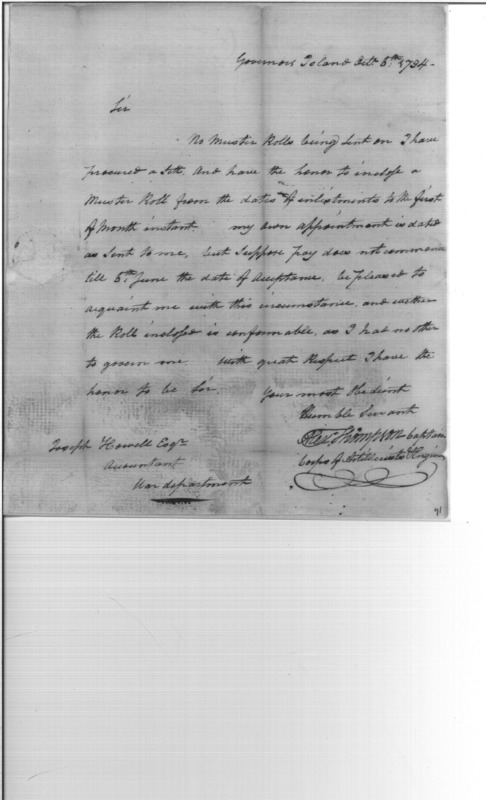 Governors Island Octr. 6th. 1794-
Sir
No Muster Rolls being sent on I have
procured a Sett, And have the honor to inclose a
Muster Roll from the dates of enlistments to the first
of Month instant. my own appointment is dated
as sent to me, but suppose pay does not commence
till 5th June the date of Acceptance, be pleased to
acquaint me with this circumstance, and wether
the Roll inclosed is conformable, as I had no other
to govern me. With great Respect I have the
honor to be Sir. Your most Obedient
Humble Servant
Alexr. Thompson Captain
Corps of Artillerists & Engin
Joseph Howell Esqr.
Accountant
War department
71